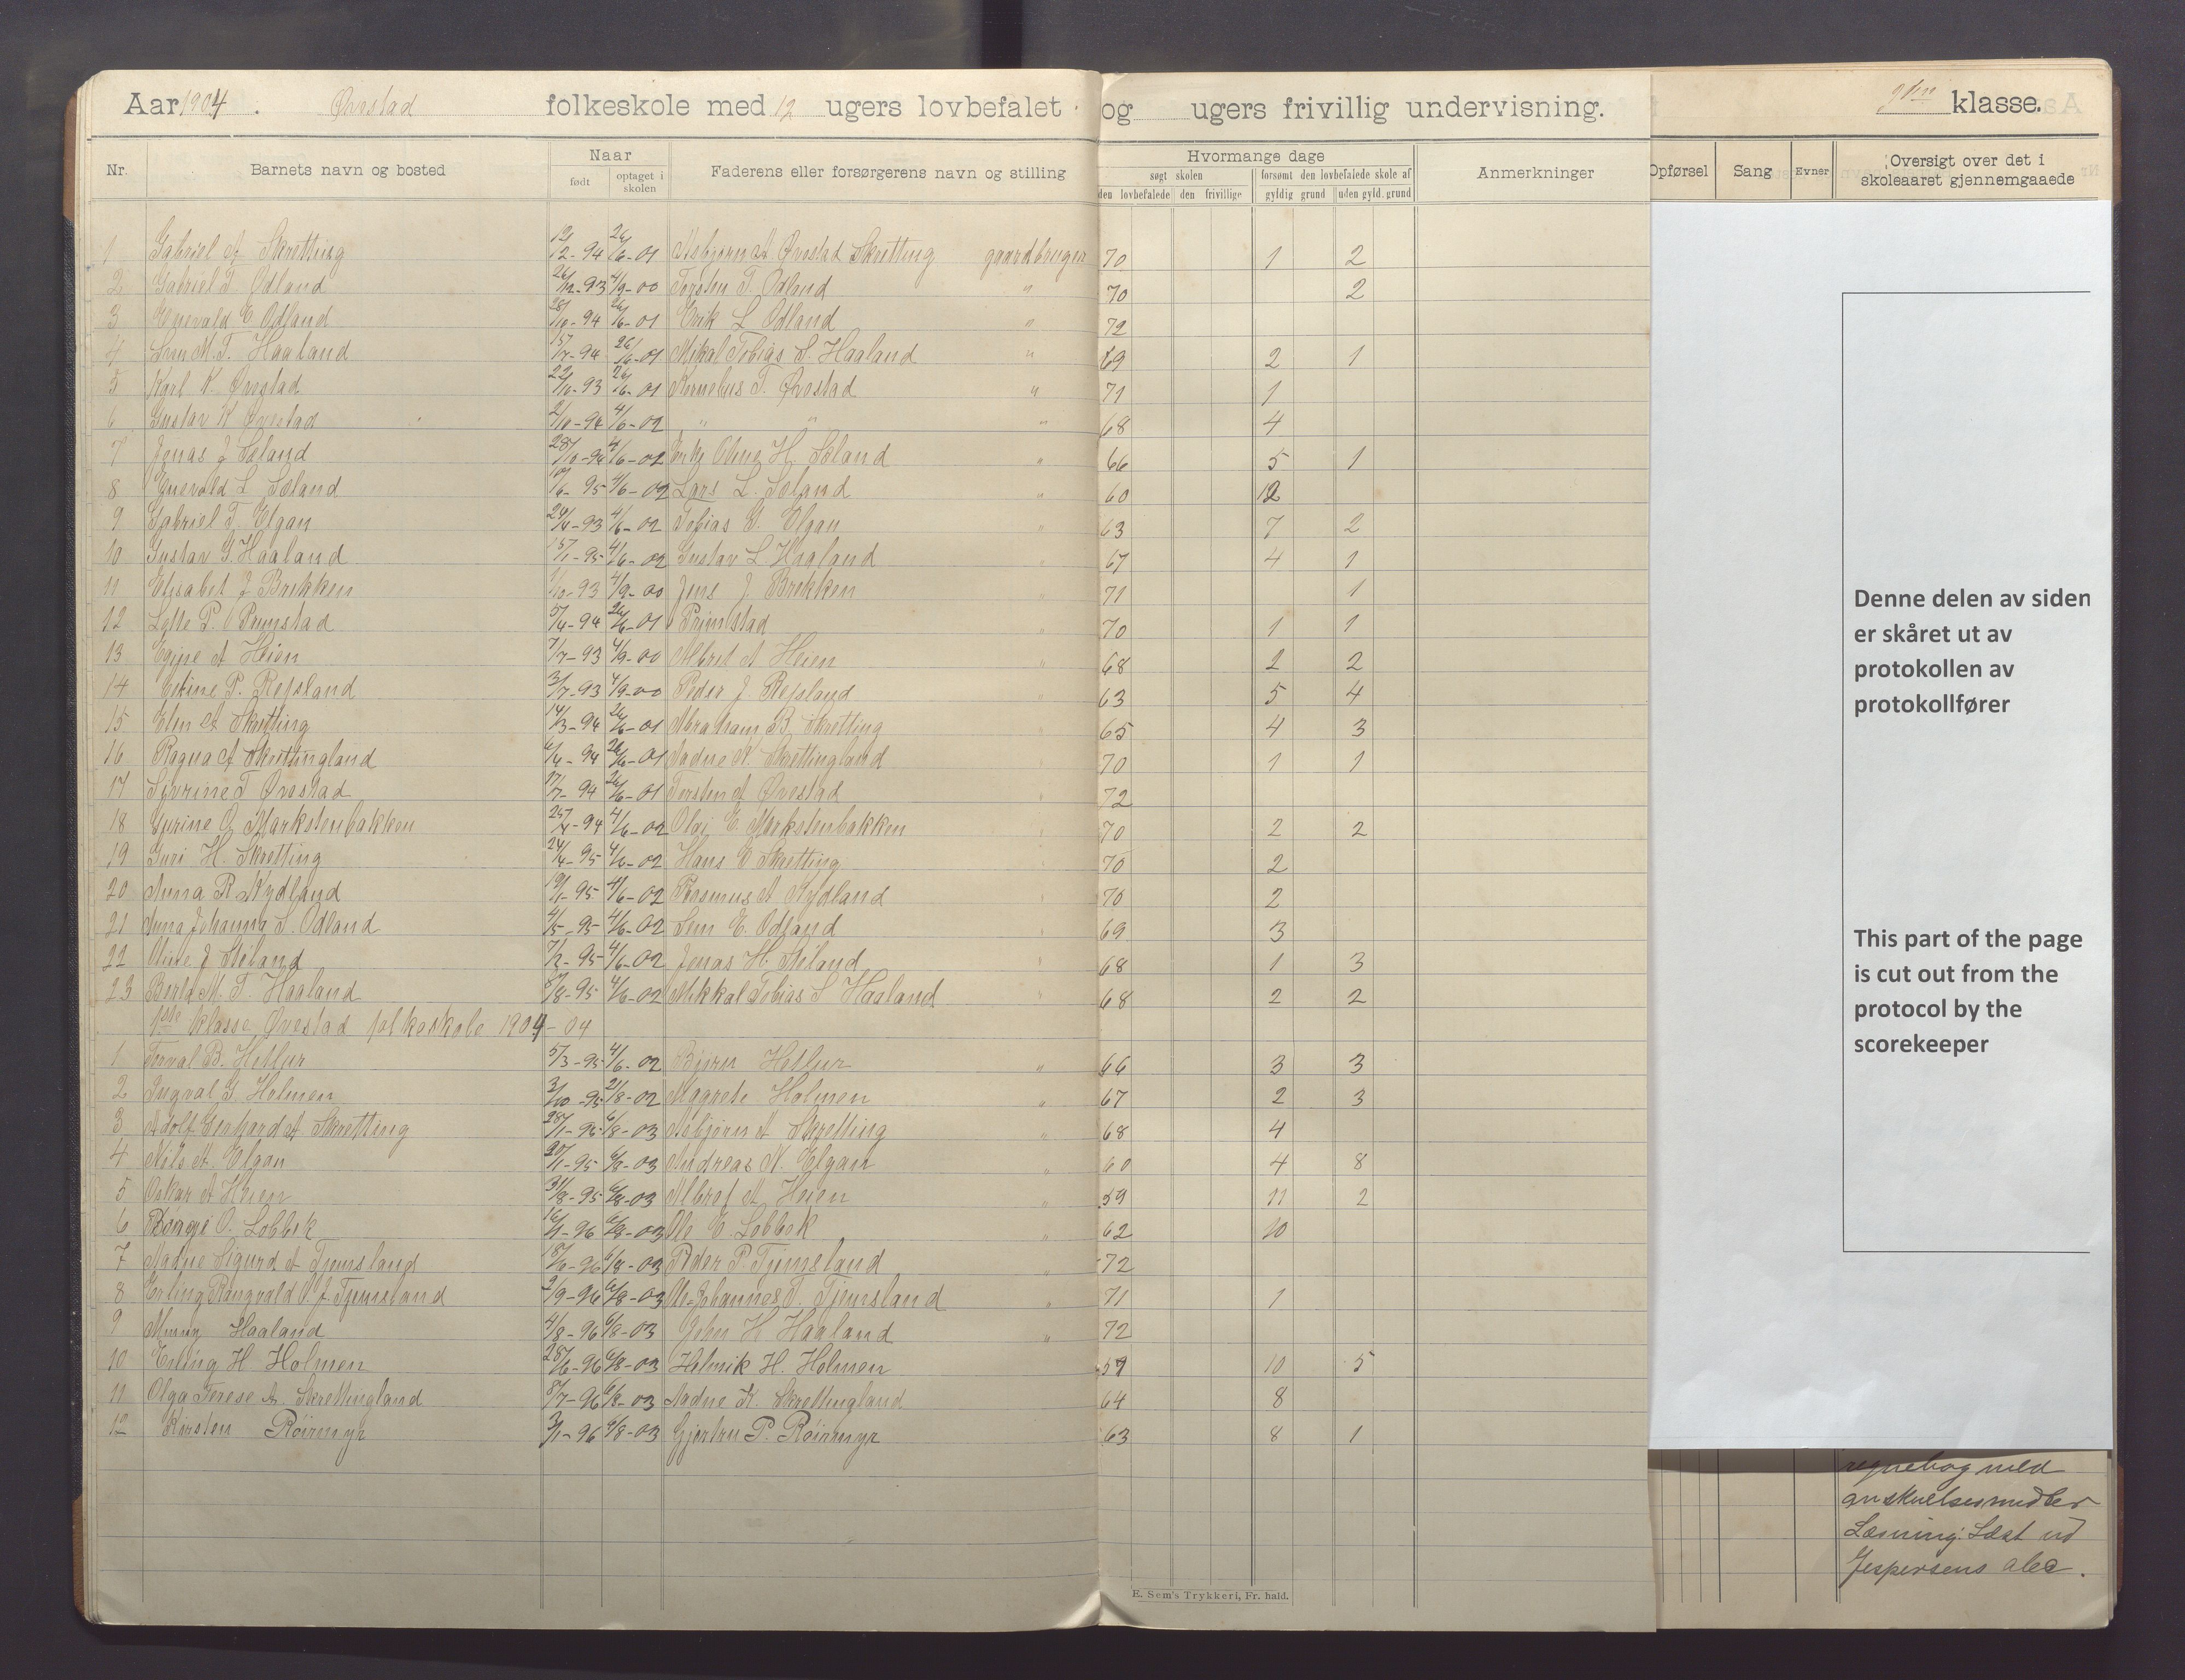 Aar 1904. Øvestad folkeskole med 12 ugers lovbefalet og ugers frivillig undervisning. klasse.
Nr. Barnets navn og bosted Naar født optaget i skolen Faderens eller forsørgerens navn og stilling Hvormange dage søgt skolen den lovbefalede den frivillige forsømt den lovbefalede skole af gyldig grund uden gyld. grund Anmerkninger Opførsel Sang Evner Oversigt over det i skoleaaret gjennemgaaede
1 Gabriel A Skretting 12/12-94 26/6-01 Asbjørn A. Øvestad Skretting gaardbruger 70 1 2
2 Gabriel T. Ødland 26/12-93 4/9-00 Torsten T. Ødland " 70 2
3 Enevald E. Odland 28/10-94 26/6-01 Erik L Odland " 72
4 M. T. Haaland 15/7-94 26/6-01 Mikal Tobias S. Haaland " 69 2 1
5 Karl K. Øvestad 22/10-93 26/6-01 Kornelius T. Øvestad " 71 1
6 Gustav K Øvestad 2/10-94 4/6-02 " " " 68 4
7 Jonas J Søland 28/10-94 4/6-02 Enke Oline H. Søland " 66 5 1
8 Enevald L Søland 6-95 4/6-02 Lars L. Søland " 60 12
9 Gabriel T. Elgan 24/4-93 4/6-02 Tobias G. Elgan " 63 7 2
10 Gustav G. Haaland 15/1-95 4/6-02 Gustav L Haaland " 67 4 1
11 Elisabet J Brekken 10-93 4/9-00 Jens J. Brekken " 71 1
12 P. Primstad 5/4-94 26/6-01 Primstad " 70 1 1
13 A Heien 7/7-93 4/9-00 Albret A Heien " 68 2 2
14 P. Refsland 3/7-93 4/9-00 Peder J Refsland " 63 5 4
15 Elen A Skretting 14/3-94 26/6-01 Abraham B. Skretting " 65 4 3
16 Ragna A Skrettingland 6/4-94 26/6-01 Aadne K. Skrettingland " 70 1 1
17 Severine T Øvestad 17/7-94 26/6-01 Torsten A Øvestad " 72
18 Gurine O. Markstenbakken 25/7-94 4/6-02 Olai E. Markstenbakken " 70 2 2
19 Guri H. Skretting 24/4-95 4/6-02 Hans E Skretting " 70 2
20 Anna R Kydland 19/1-95 4/6-02 Rasmus A Kydland " 70 2
21 Anna Johanna S. Odland 4/5-95 4/6-02 Sem E. Odland " 69 3
22 Oline J Søland 7/2-95 4/6-02 Jonas H. Søland " 68 1 3
23 Berta M. T. Haaland 8-95 4/6-02 Mikkal Tobias S Haaland " 68 2 2
1ste klasse, Øvestad folkeskole 1904-04
1 Torval B. Hetlur 5/3-95 4/6-02 Bjørn Hetlur " 66 3 3
2 Ingval G. Holmen 3/10-95 2/8-02 Magrete Holmen " 67 2 3
3 Adolf Gerhard A. Skretting 28/1-96 6/8-03 Asbjørn A Skretting " 68 4
4 Nils A. Elgan 20/1-95 6/8-03 Andreas N. Elgan " 60 4 8
5 Oskar A Heien 31/8-95 6/8-03 Albret A. Heien " 59 11 2
6 O. Lobbek 16/1-96 6/8-03 Ole E. Lobbek " 62 10
7 Aadne Sigurd A Tjemsland 18/6-96 6/8-03 Peder P. Tjemsland 72
8 Erling Rangvald O. J. Tjemsland 2/9-96 6/8-03 Ole Johannes T. Tjemsland " 71 1
9 Minny Haaland 4/8-96 6/8-03 John H Haaland " 72
10 Erling H Holmen 28/6-96 6/8-03 Helmik H. Holmen 57 10 5
11 Olga Terese A. Skrettingland 8/7-96 6/8-03 Aadne K. Skrettingland 64 8
12 Kirsten Röirmyr 3/1-96 6/8-03 Gjertru P. Röirmyr 63 8 1
E. Sem's Trykkeri, Fr. hald.
Denne delen av siden
er skåret ut av
protokollen av
protokollfører
This part of the page
is cut out from the
protocol by the
scorekeeper
regnebog med
anskuelsesmidler
Læsning: Læst ud
Jespersens abc.